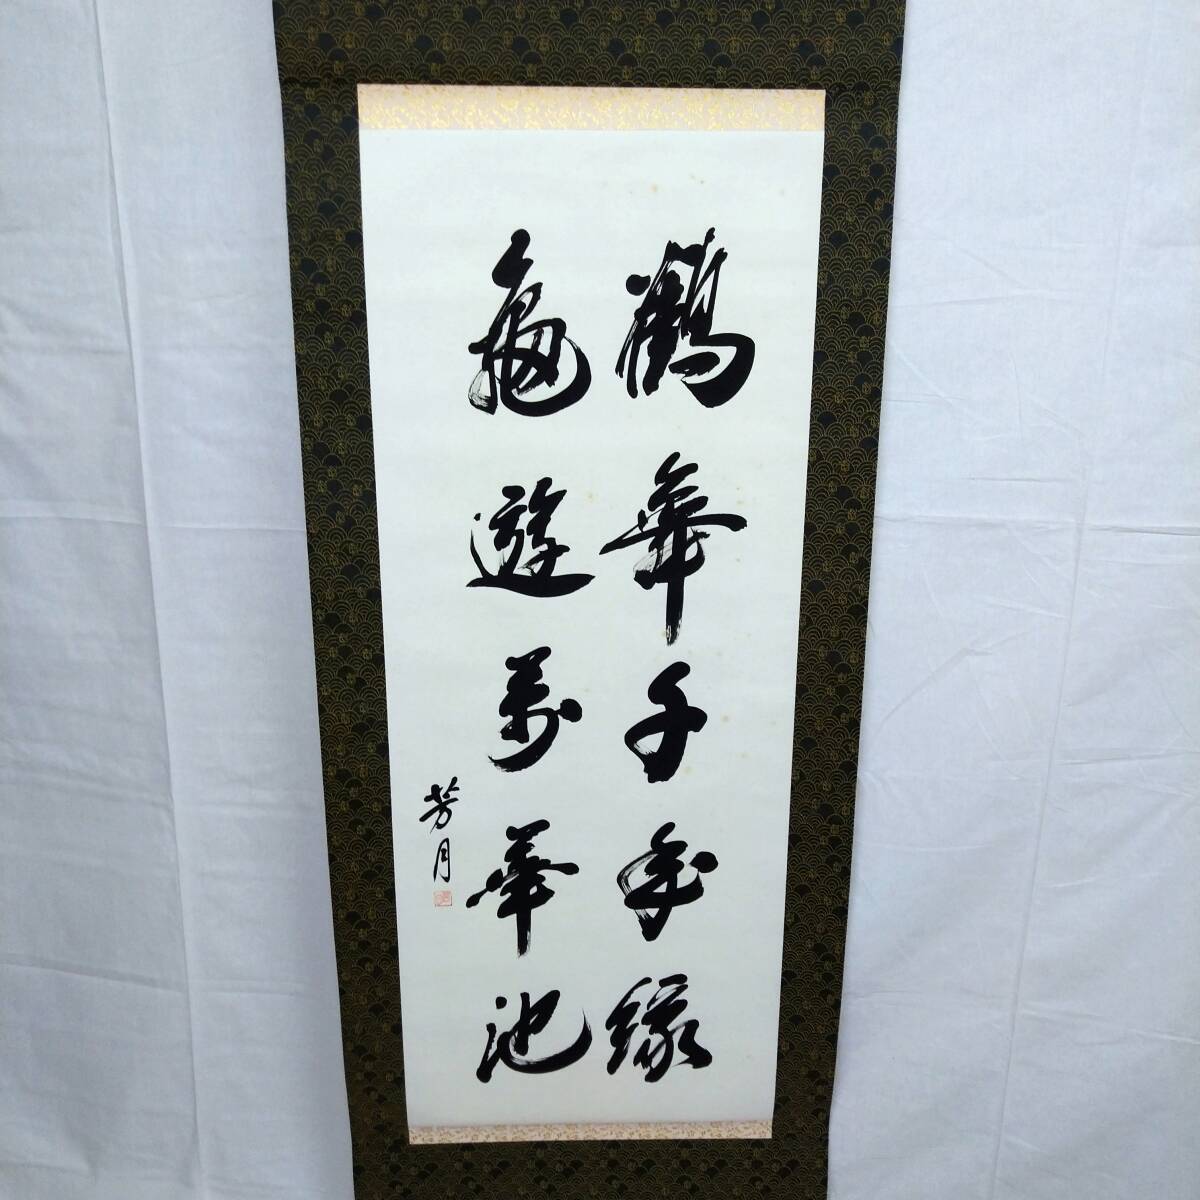 鶴舞千年緑
亀遊萬華池
芳月